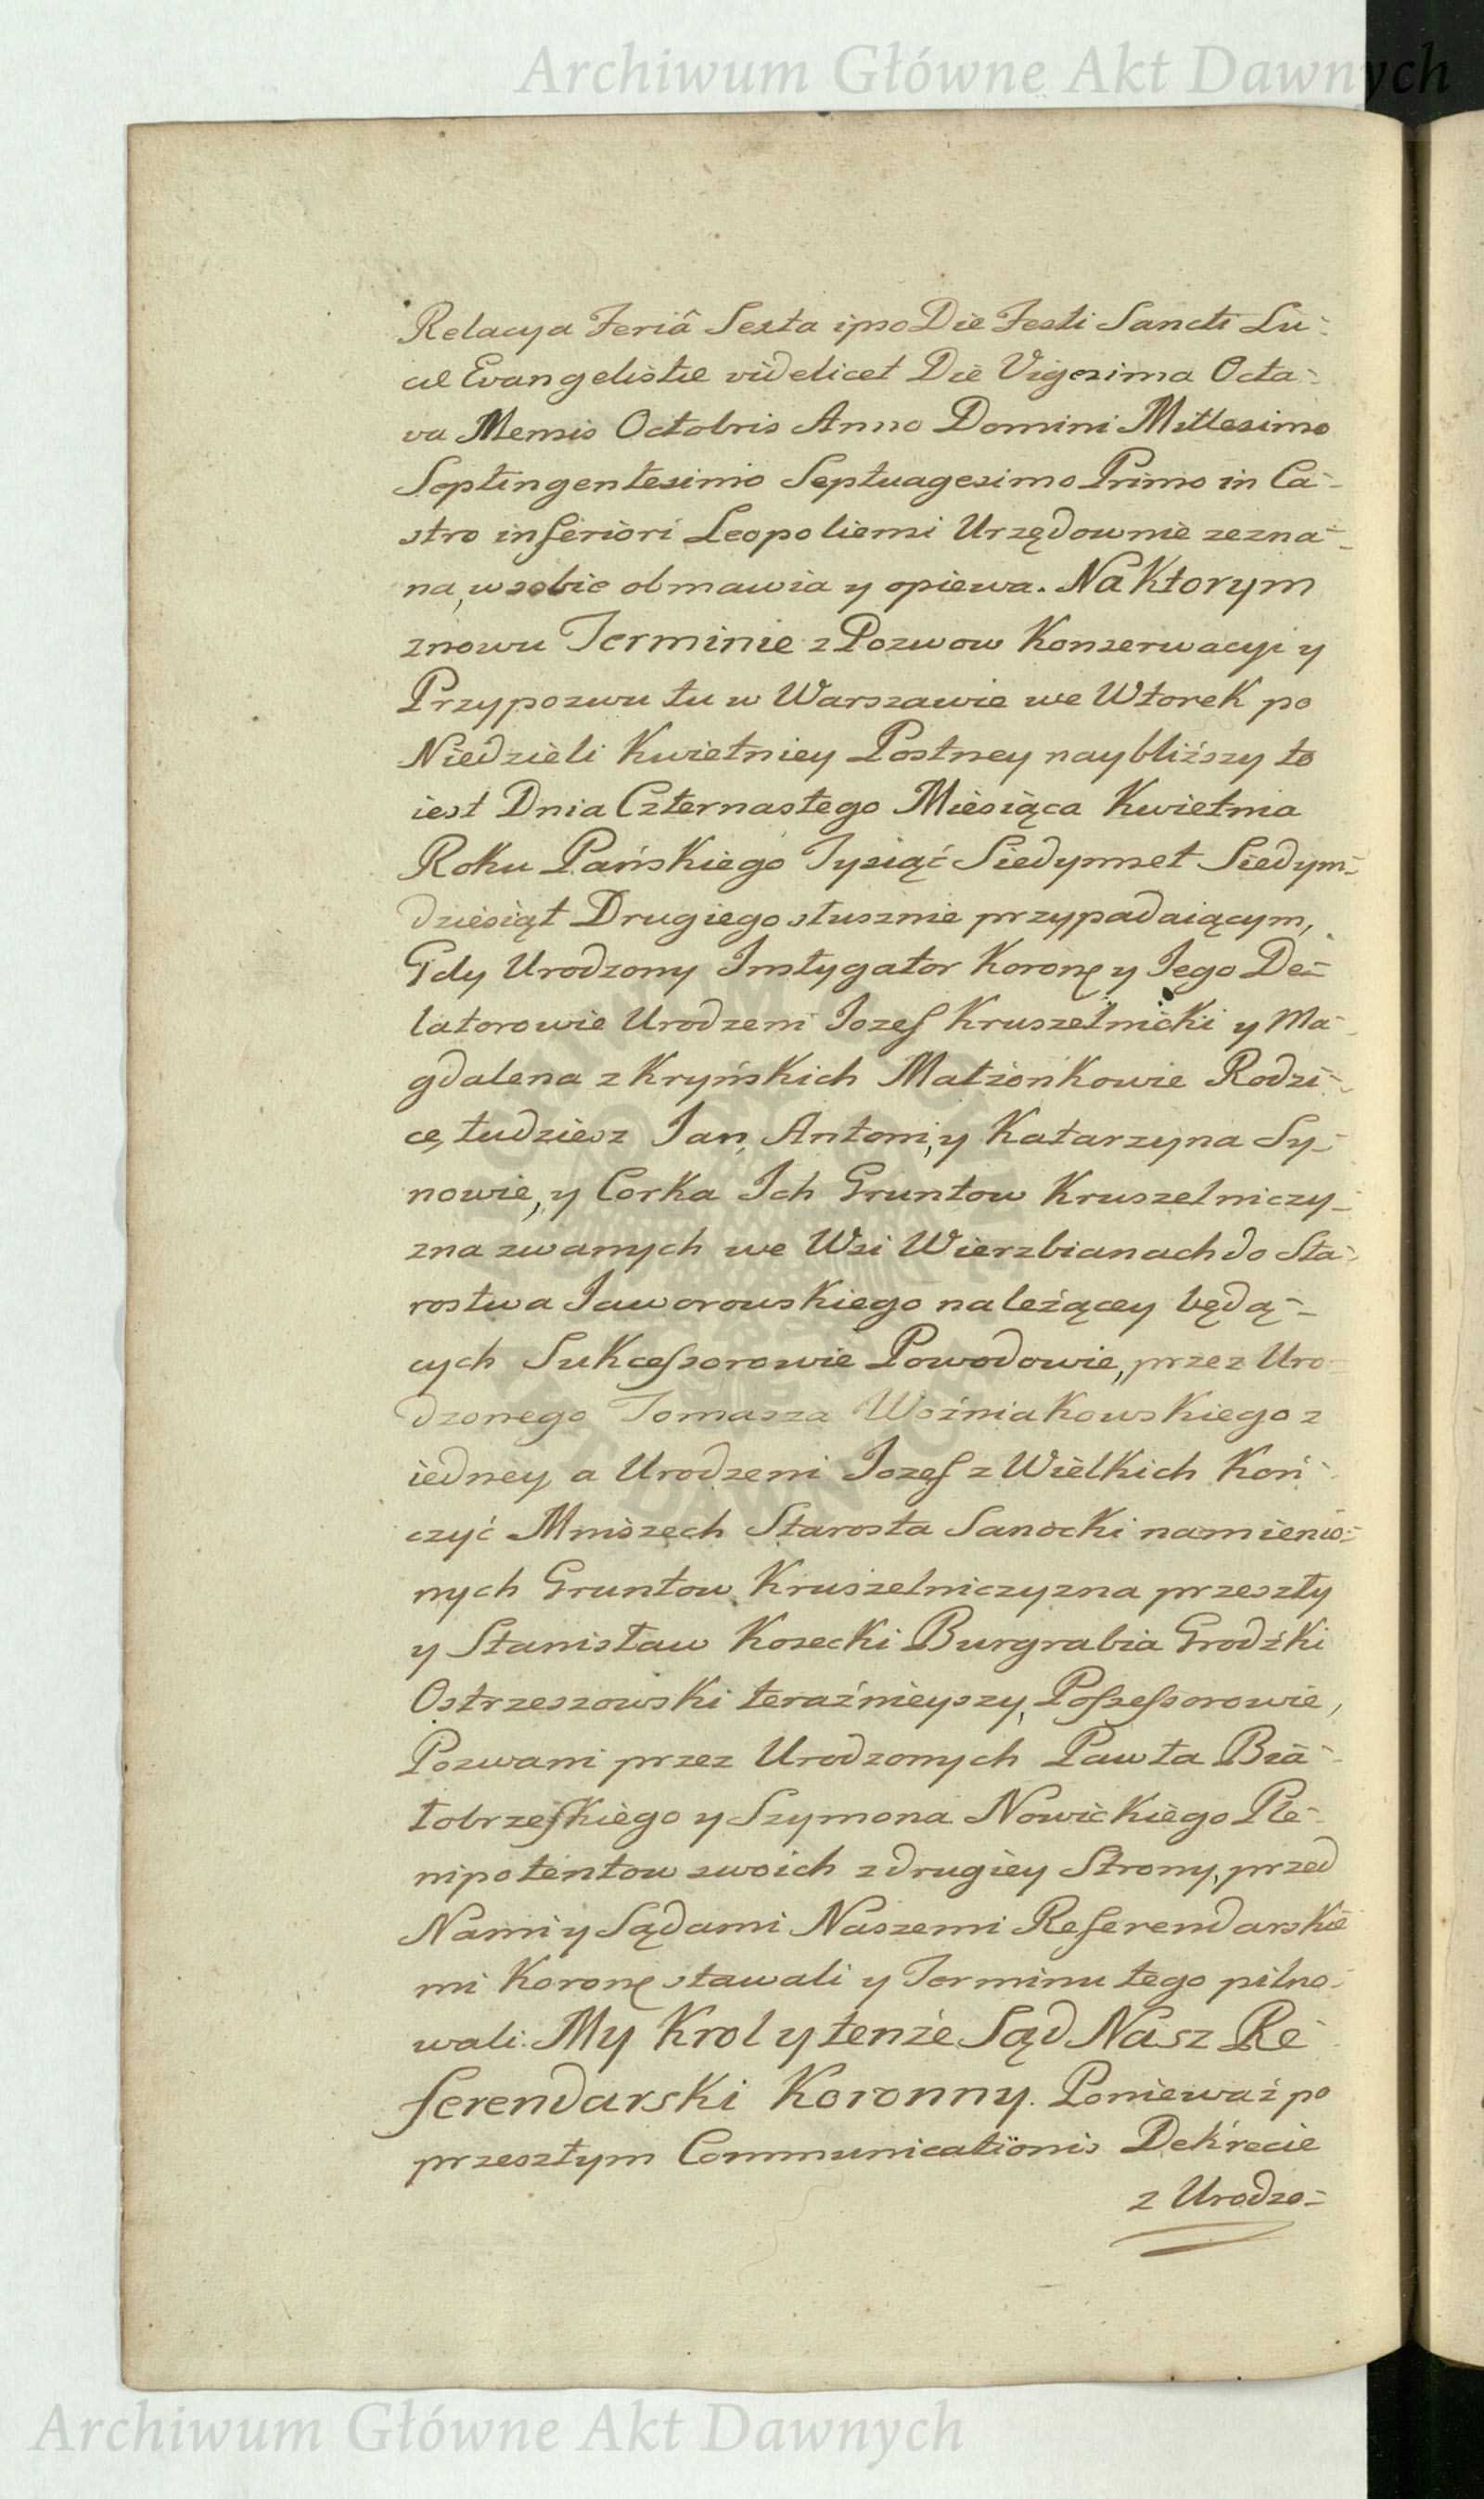 Archiwum Główne Akt Dawnych
Relacya Feriâ Sexta ipso Die Festi Sancti Lu-
cæ Evangelistæ videlicet Die Vigesima Octa-
va Mensis Octobris Anno Domini Millesimo
Septingentesimo Septuagesimo Primo in Ca-
stro inferiori Leopoliensi Urzędownie zezna-
na, w sobie obmawia y opiewa. Na Ktorym
znowu Terminie z Pozwow Konserwacyi y
Przypozwu tu w Warszawie we Wtorek po
Niedzieli Kwietniey Postney naybliższy to
iest Dnia Czternastego Miesiąca Kwietnia
Roku Pańskiego Tysiąć Siedymset Siedym-
dziesiąt Drugiego słusznie przypadaiącym,
Gdy Urodzony Instygator Koronę y Jego De-
latorowie Urodzeni Jozef Kruszelnicki y Ma-
gdalena z Kryńskich Małżonkowie Rodzi-
cę, tudziesz Jan, Antoni, y Katarzyna Sy-
nowie, y Corka Ich Gruntow Kruszelniczy-
zna zwanych we Wsi Wierzbianach do Sta-
rostwa Jaworowskiego należącey będą-
cych Sukcessorowie Powodowie, przez Uro-
dzonego Tomasza Woźniakowskiego z
iedney, a Urodzeni Jozef z Wielkich Koń-
czyć Mniszech Starosta Sanocki namienio-
nych Gruntow Kruszelniczyzna przeszły
y Stanisław Kosecki Burgrabia Grodźki
Ostrzeszowski teraźnieyszy, Possessorowie,
Pozwani przez Urodzonych Pawła Bia-
łobrzeskiego y Szymona Nowickiego Ple-
nipotentow swoich z drugiey Strony, przed
Nami y Sądami Naszemi Referendarskie
mi Koronę stawali y Terminu tego pilno-
wali. My Krol y tenże Sąd Nasz Re-
ferendarski Koronny. Ponieważ po
przeszłym Communicationis Dekrecie
z Urodzo-
Archiwum Główne Akt Dawnych